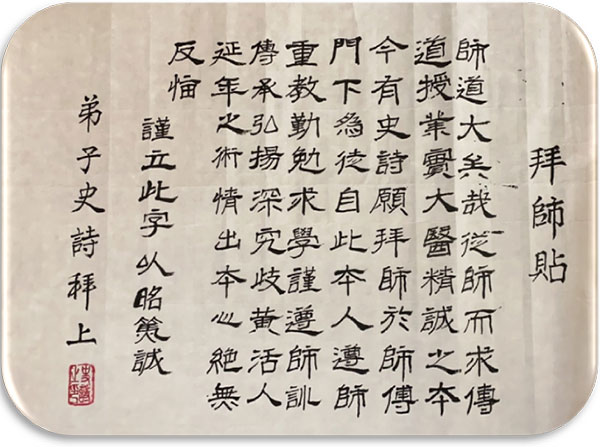 拜師貼
師道大矣哉從師而求傳
道授業實大醫精誠之本
今有史詩願拜師於師傅
門下為徒自此本人遵師
重教勤勉求學謹遵師訓
傳承弘揚深究歧黃活人
延年之術情出本心絕無
反悔
謹立此字以昭篤誠
弟子史詩拜上